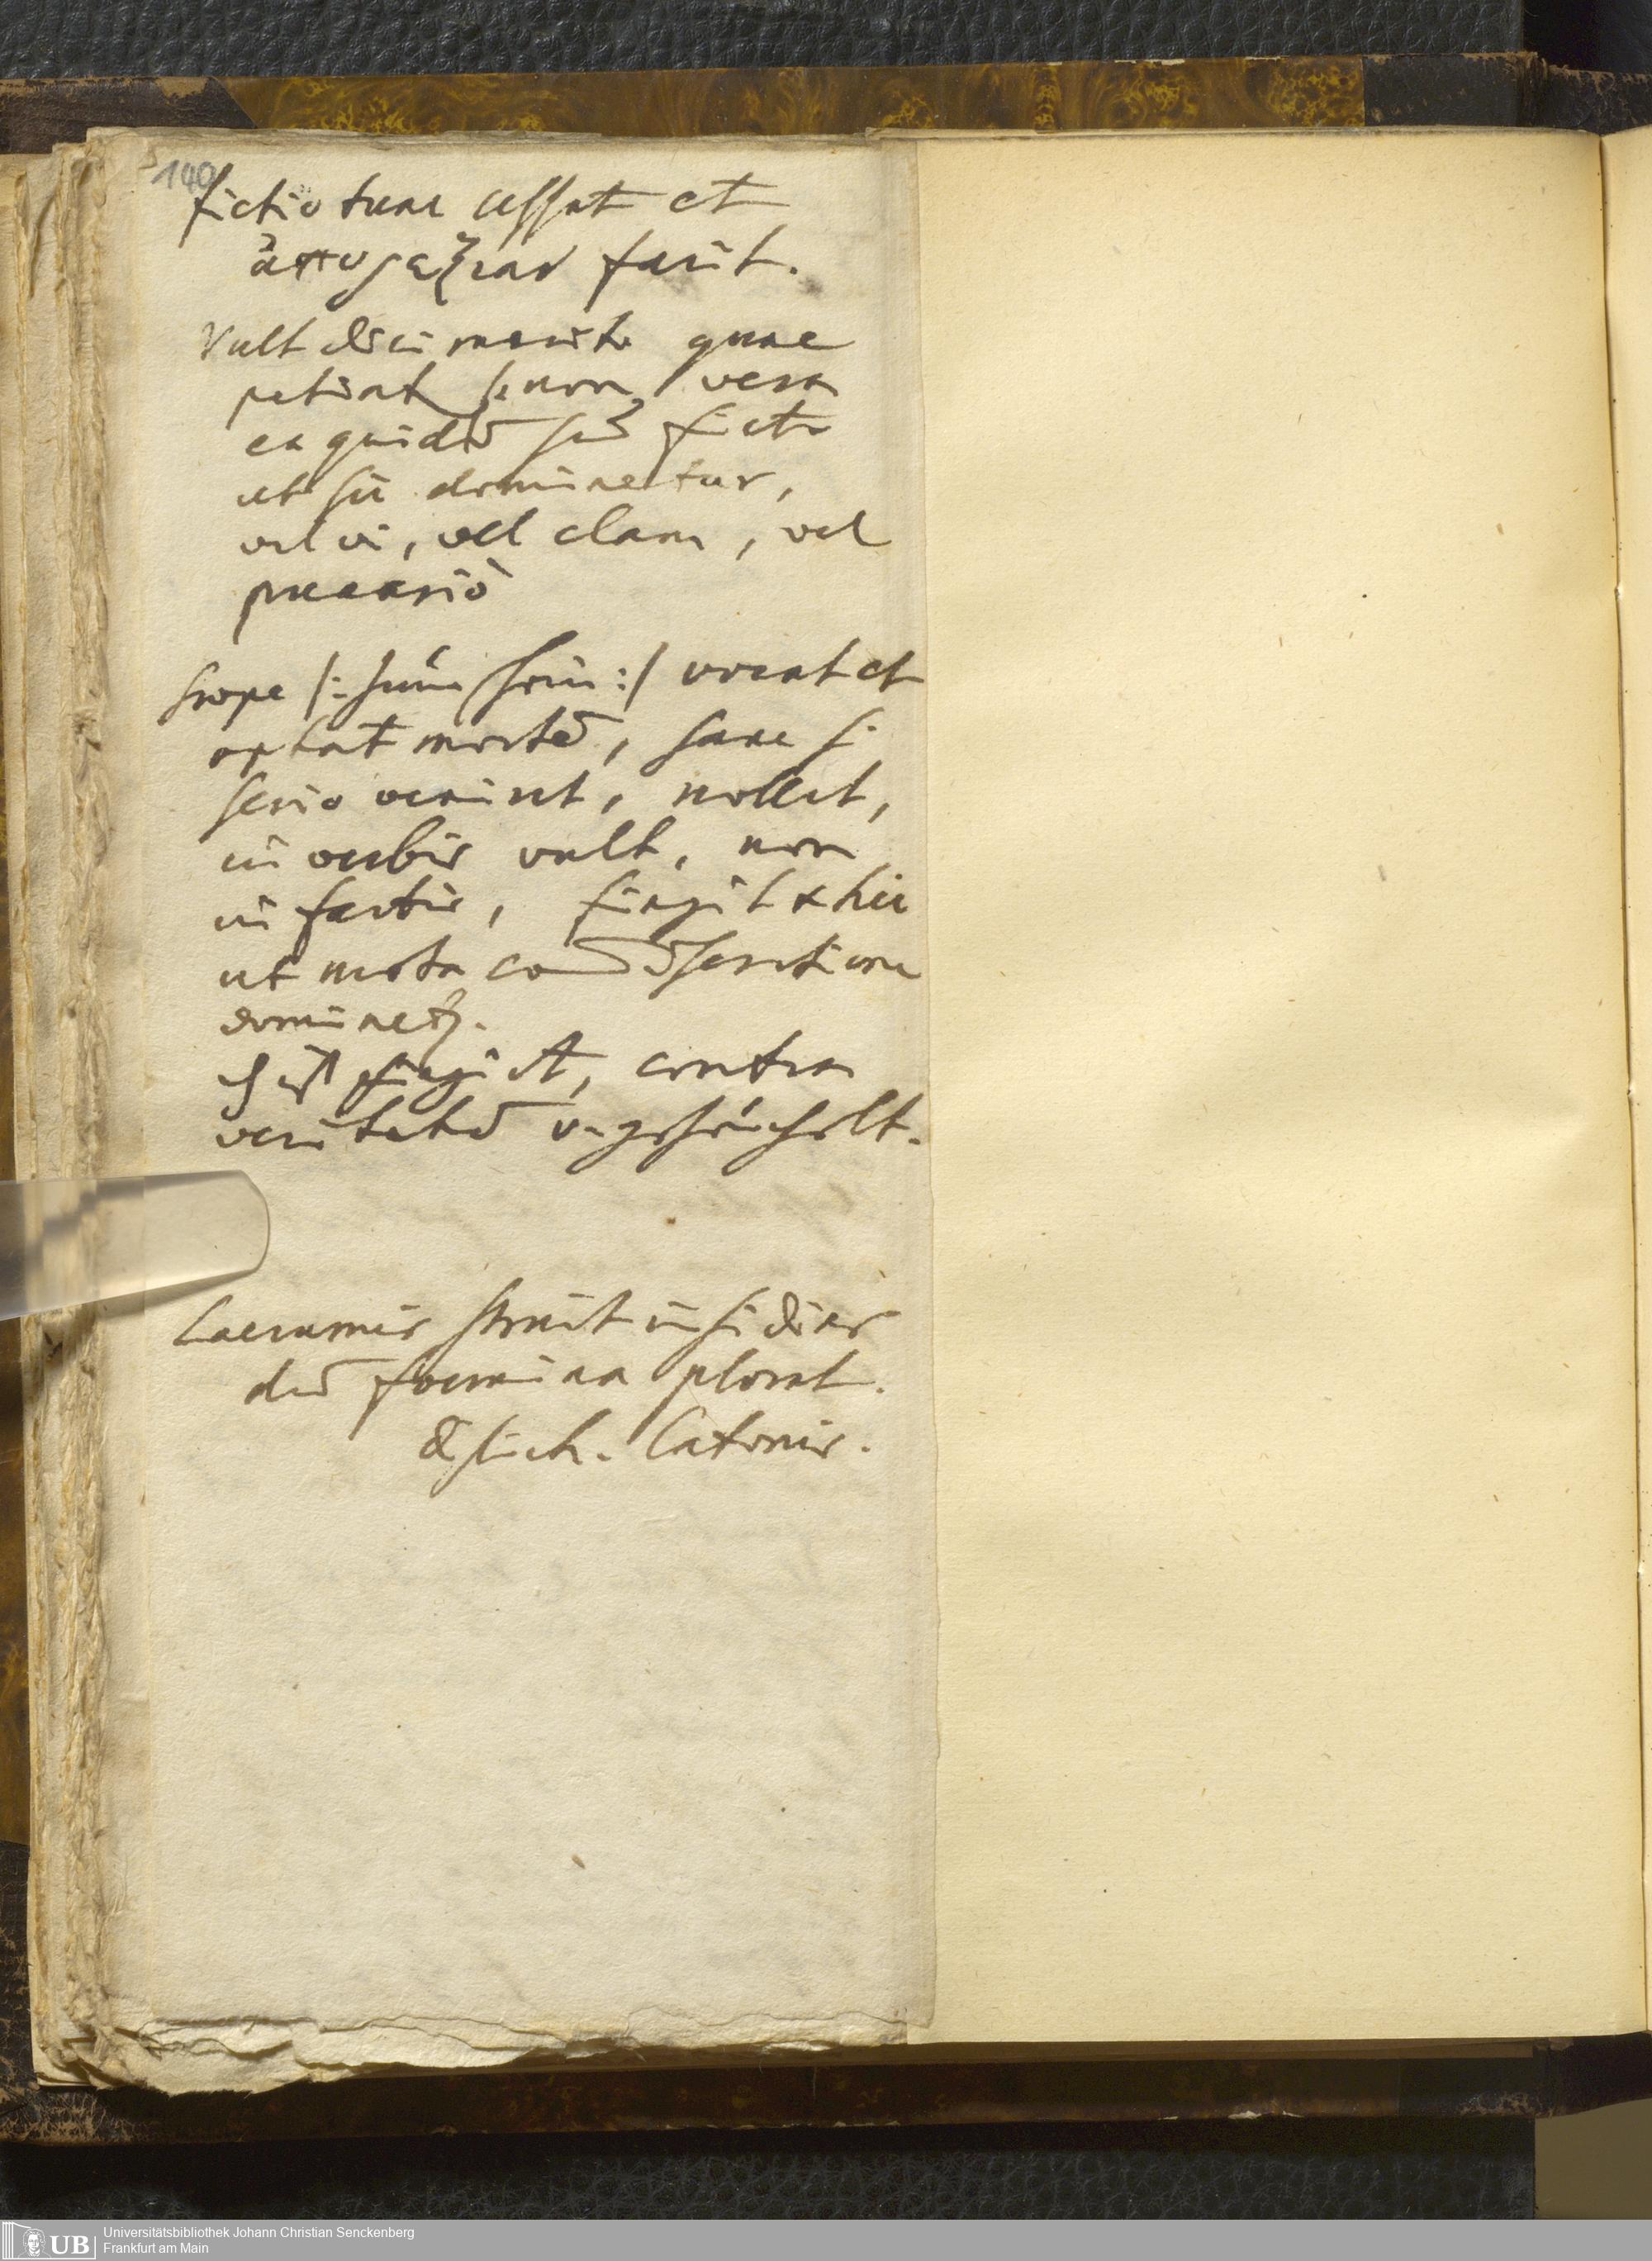 140
fictio tunc cessat et
ἀποπληξίαν facit.
Vult dici merito quae
patiat, non vera
ea quidē sed ficta
ut sic dominetur,
vel vi, vel clam, vel
precariò
saepe /: :/ vocat et
optat mortē, sane si
serio veniret, nollet,
in verbis vult, non
in factis, fingit & hic
ut mota
dominetr.
Es ist fingirt, contra
veritatē u. geheuchelt.
Lacrumis struit insidias
dū foemina plorat.
Distich. Catonis.
UB
Universitätsbibliothek Johann Christian Senckenberg
Frankfurt am Main